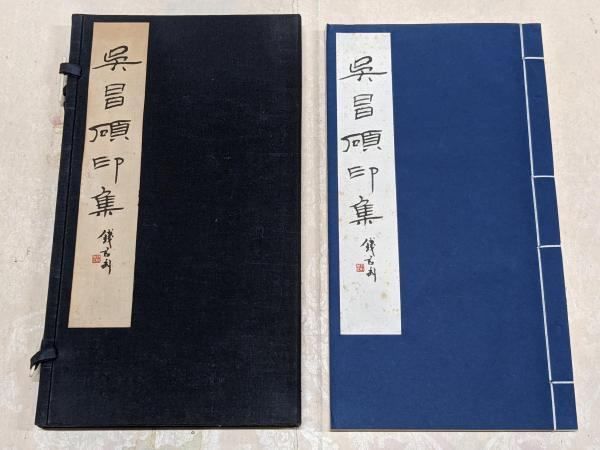 吳昌碩印集
錢君匋
吳昌碩印集
錢君匋